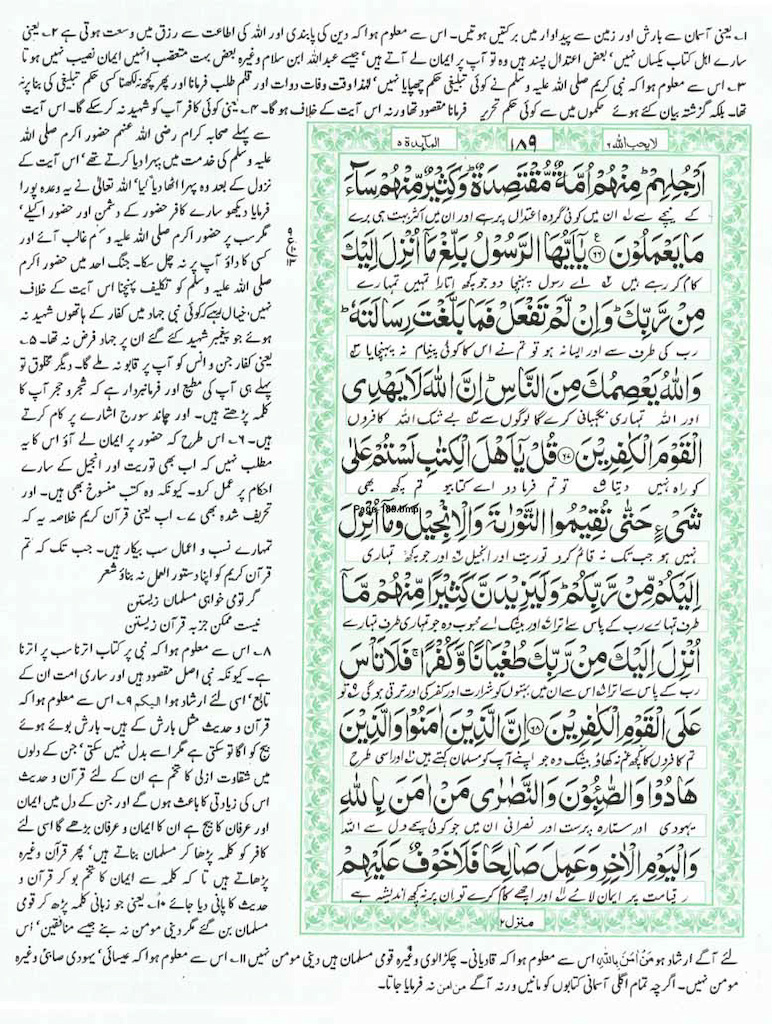 ۱۔ یعنی آسمان سے بارش اور زمین سے پیداوار میں برکتیں ہوتیں۔ اس سے معلوم ہوا کہ دین کی پابندی اور اللہ کی اطاعت سے رزق میں وسعت ہوتی ہے ۲۔ یعنی
سارے اہل کتاب یکساں نہیں' بعض اعتدال پسند ہیں وہ تو آپ پر ایمان لے آتے ہیں' جیسے عبداللہ ابن سلام وغیرہ بعض بہت متعصب انہیں ایمان نصیب نہیں ہوتا
۳۔ اس سے معلوم ہوا کہ نبی کریم صلی اللہ علیہ وسلم نے کوئی تبلیغی حکم چھپایا نہیں' لہٰذا وقت وفات دوات اور قلم طلب فرمانا اور پھر کچھ نہ لکھنا کسی حکم تبلیغی کی بنا پر نہ
تھا۔ بلکہ گزشتہ بیان کئے ہوئے حکموں میں سے کوئی حکم تحریر فرمانا مقصود تھا ورنہ اس آیت کے خلاف ہو گا۔ ۴۔ یعنی کوئی کافر آپ کو شہید نہ کر سکے گا۔ اس آیت
سے پہلے صحابہ کرام رضی اللہ عنہم حضور اکرم صلی اللہ
علیہ وسلم کی خدمت میں پہرا دیا کرتے تھے' اس آیت کے
نزول کے بعد وہ پہرا اٹھا دیا گیا' اللہ تعالیٰ نے یہ وعدہ پورا
فرمایا دیکھو سارے کافر حضور کے دشمن اور حضور اکیلے'
مگر سب پر حضور اکرم صلی اللہ علیہ وسلم غالب آئے اور
کسی کا داؤ آپ پر نہ چل سکا۔ جنگ احد میں حضور اکرم
صلی اللہ علیہ وسلم کو تکلیف پہنچنا اس آیت کے خلاف
نہیں' خیال رہے کہ کوئی نبی جہاد میں کفار کے ہاتھوں شہید نہ
ہوئے جو پیغمبر شہید کئے گئے ان پر جہاد فرض نہ تھا۔ ۵۔
یعنی کفار جن و انس کو آپ پر قابو نہ ملے گا۔ دیگر مخلوق تو
پہلے ہی آپ کی مطیع اور فرمانبردار ہے کہ شجر و حجر آپ کا
کلمہ پڑھتے ہیں۔ اور چاند سورج اشارے پر کام کرتے
ہیں۔ ۶۔ اس طرح کہ حضور پر ایمان لے آؤ اس کا یہ
مطلب نہیں کہ اب بھی توریت اور انجیل کے سارے
احکام پر عمل کرو۔ کیونکہ وہ کتب منسوخ بھی ہیں۔ اور
تحریف شدہ بھی ۷۔ اب یعنی قرآن کریم خلاصہ یہ کہ
تمہارے نسب و اعمال سب بیکار ہیں۔ جب تک کہ تم
قرآن کریم کو اپنا دستور العمل نہ بناؤ شعر
گر تومی خواہی مسلماں زیستن
نیست ممکن جزبہ قرآن زیستن
۸۔ اس سے معلوم ہوا کہ نبی پر کتاب اترنا سب پر اترنا
ہے۔ کیونکہ نبی اصل مقصود ہیں اور ساری امت ان کے
تابع' اسی لئے ارشاد ہوا الیکم ۹۔ اس سے معلوم ہوا کہ
قرآن و حدیث مثل بارش کے ہیں۔ بارش بوئے ہوئے
بیج کو اگا تو سکتی ہے مگر اسے بدل نہیں سکتی' جن کے دلوں
میں شقاوت ازلی کا تخم ہے ان کے لئے قرآن و حدیث
اس کی زیادتی کا باعث ہوں گے اور جن کے دل میں ایمان
اور عرفان کا بیج ہے ان کا ایمان و عرفان بڑھے گا اسی لئے
کافر کو کلمہ پڑھا کر مسلمان بناتے ہیں' پھر قرآن وغیرہ
پڑھاتے ہیں تا کہ کلمہ سے ایمان کا تخم بو کر قرآن و
حدیث کا پانی دیا جائے ۱۰۔ یعنی جو زبانی کلمہ پڑھ کر قومی
مسلمان بن گئے مگر دینی مومن نہ بنے جیسے منافقین' اس
لایحب اللہ ۶
۱۸۹
المآئدۃ ۵
اَرْجُلِهِمْ مِنْهُمْ اُمَّةٌ مُّقْتَصِدَةٌ وَكَثِيْرٌ مِّنْهُمْ سَآءَ
کے نیچے سے ان میں کوئی گروہ اعتدال پر ہے اور ان میں اکثر بہت ہی برے
مَا يَعْمَلُوْنَ ﴿۶۶﴾ يٰٓاَيُّهَا الرَّسُوْلُ بَلِّغْ مَآ اُنْزِلَ اِلَيْكَ
کام کر رہے ہیں اے رسول پہنچا دو جو کچھ اتارا گیا تمہیں تمہارے
مِنْ رَّبِّكَ وَاِنْ لَّمْ تَفْعَلْ فَمَا بَلَّغْتَ رِسَالَتَهٗ
رب کی طرف سے اور ایسا نہ ہو تو تم نے اس کا کوئی پیغام نہ پہنچایا
وَاللّٰهُ يَعْصِمُكَ مِنَ النَّاسِ اِنَّ اللّٰهَ لَا يَهْدِى
اور اللہ تمہاری نگہبانی کرے گا لوگوں سے بے شک اللہ کافروں
الْقَوْمَ الْكٰفِرِيْنَ ﴿۶۷﴾ قُلْ يٰٓاَهْلَ الْكِتٰبِ لَسْتُمْ عَلٰى
کو راہ نہیں دیتا تم فرما دو اے کتابیو تم کچھ بھی
شَىْءٍ حَتّٰى تُقِيْمُوا التَّوْرٰىةَ وَالْاِنْجِيْلَ وَمَآ اُنْزِلَ
Page-189.bmp
نہیں ہو جب تک نہ قائم کرو توریت اور انجیل اور جو کچھ تمہاری
اِلَيْكُمْ مِّنْ رَّبِّكُمْ وَلَيَزِيْدَنَّ كَثِيْرًا مِّنْهُمْ مَّآ
طرف تمہارے رب کے پاس سے اترا اور بیشک اے محبوب وہ جو تمہاری طرف تمہارے
اُنْزِلَ اِلَيْكَ مِنْ رَّبِّكَ طُغْيَانًا وَّكُفْرًا فَلَا تَاْسَ
رب کے پاس سے اترا اس سے ان میں بہتوں کو شرارت اور کفر کی اور ترقی ہوگی تو
عَلَى الْقَوْمِ الْكٰفِرِيْنَ ﴿۶۸﴾ اِنَّ الَّذِيْنَ اٰمَنُوْا وَالَّذِيْنَ
تم کافروں کا کچھ غم نہ کھاؤ بیشک وہ جو اپنے آپ کو مسلمان کہتے ہیں اور اسی طرح
هَادُوْا وَالصّٰبِـُٔوْنَ وَالنَّصٰرٰى مَنْ اٰمَنَ بِاللّٰهِ
یہودی اور ستارہ پرست اور نصرانی ان میں جو کوئی سچے دل سے اللہ
وَالْيَوْمِ الْاٰخِرِ وَعَمِلَ صَالِحًا فَلَا خَوْفٌ عَلَيْهِمْ
قیامت پر ایمان لائے اور اچھے کام کرے تو ان پر نہ کچھ اندیشہ ہے
منزل ۲
لئے آگے ارشاد ہو مَنْ اٰمَنَ بِاللّٰہِ اس سے معلوم ہوا کہ قادیانی۔ چکڑالوی وغیرہ قومی مسلمان ہیں دینی مومن نہیں ۱۱۔ اس سے معلوم ہوا کہ عیسائی' یہودی صابئی وغیرہ
مومن نہیں۔ اگرچہ تمام اگلی آسمانی کتابوں کو مانیں ورنہ آگے من امن نہ فرمایا جاتا۔